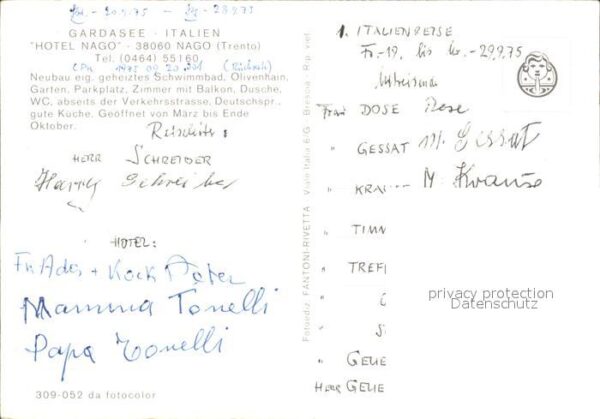 20.9.75 - 28.9.75
GARDASEE - ITALIEN
"HOTEL NAGO" - 38060 NAGO (Trento)
Tel. (0464) 55160
1975 09 20
Neubau eig. geheiztes Schwimmbad, Olivenhain,
Garten, Parkplatz, Zimmer mit Balkon, Dusche,
WC, abseits der Verkehrsstrasse, Deutschspr.,
gute Küche, Geöffnet von März bis Ende
Oktober.
HERR SCHREIBER
Harry Schreiber
HOTEL:
Mamma Tonelli
Papa Tonelli
309-052 da fotocolor
Fotoediz. FANTONI-RIVETTA - V.lun Italia 6/G - Brescia - Rip. viet.
1. ITALIENREISE
Fr.-19. bis - 29.9.75
Frau DOSE Dose
" GESSAT M. Gessat
" KRAU M. Krause
" TIMM
" TREFF
"
" S
" GEHE
HERR GEHE
privacy protection
Datenschutz